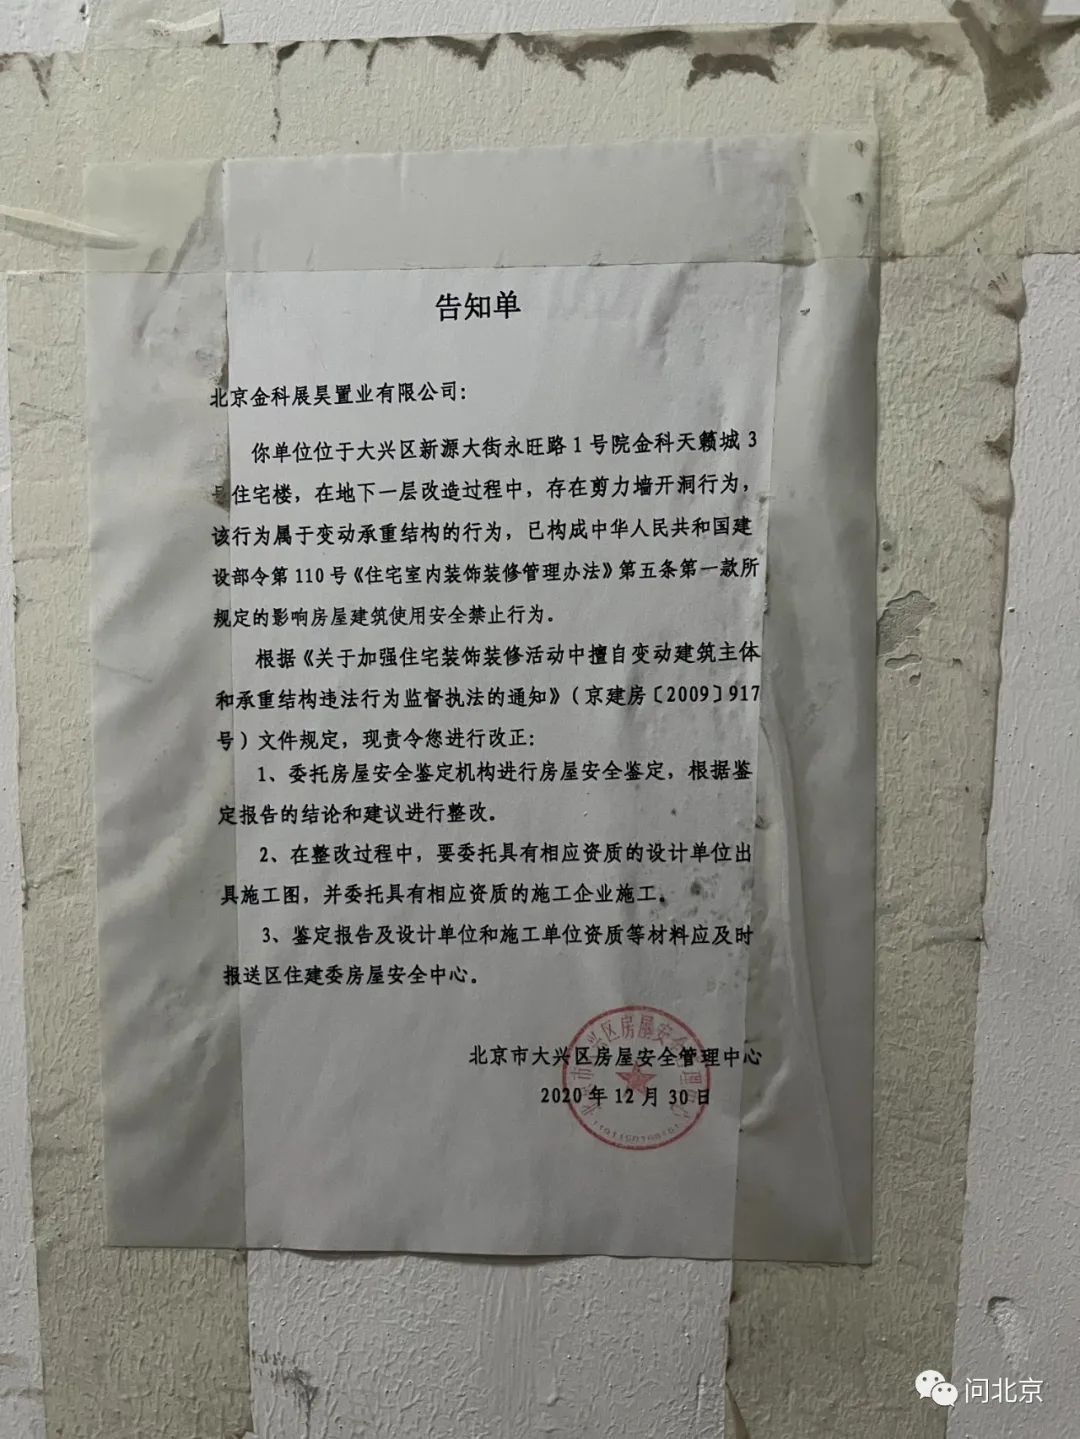 告知单
北京金科展昊置业有限公司：
你单位位于大兴区新源大街永旺路1号院金科天籁城3
号住宅楼，在地下一层改造过程中，存在剪力墙开洞行为，
该行为属于变动承重结构的行为，已构成中华人民共和国建
设部令第110号《住宅室内装饰装修管理办法》第五条第一款所
规定的影响房屋建筑使用安全禁止行为。
根据《关于加强住宅装饰装修活动中擅自变动建筑主体
和承重结构违法行为监督执法的通知》（京建房〔2009〕917
号）文件规定，现责令您进行改正：
1、委托房屋安全鉴定机构进行房屋安全鉴定，根据鉴
定报告的结论和建议进行整改。
2、在整改过程中，要委托具有相应资质的设计单位出
具施工图，并委托具有相应资质的施工企业施工。
3、鉴定报告及设计单位和施工单位资质等材料应及时
报送区住建委房屋安全中心。
北京市大兴区房屋安全管理中心
2020年12月30日
北京市大兴区房屋安全管理中心
问北京